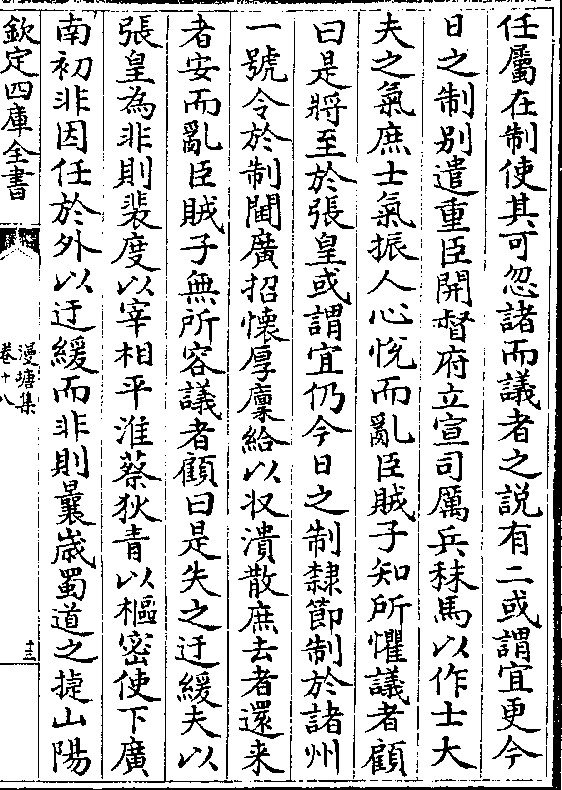 任屬在制使其可忽諸而議者之説有二或謂宜更今
日之制别遣重臣開督府立宣司厲兵秣馬以作士大
夫之氣庶士氣振人心悅而亂臣賊子知所懼議者顧
曰是將至於張皇或謂宜仍今日之制隸節制於諸州
一號令於制閫廣招懷厚廩給以収潰散庶去者還来
者安而亂臣賊子無所容議者顧曰是失之迂緩夫以
張皇為非則裴度以宰相平淮蔡狄青以樞密使下廣
南初非因任於外以迂緩而非則曩歳蜀道之捷山陽
欽定四庫全書
漫塘集
卷十八
十三